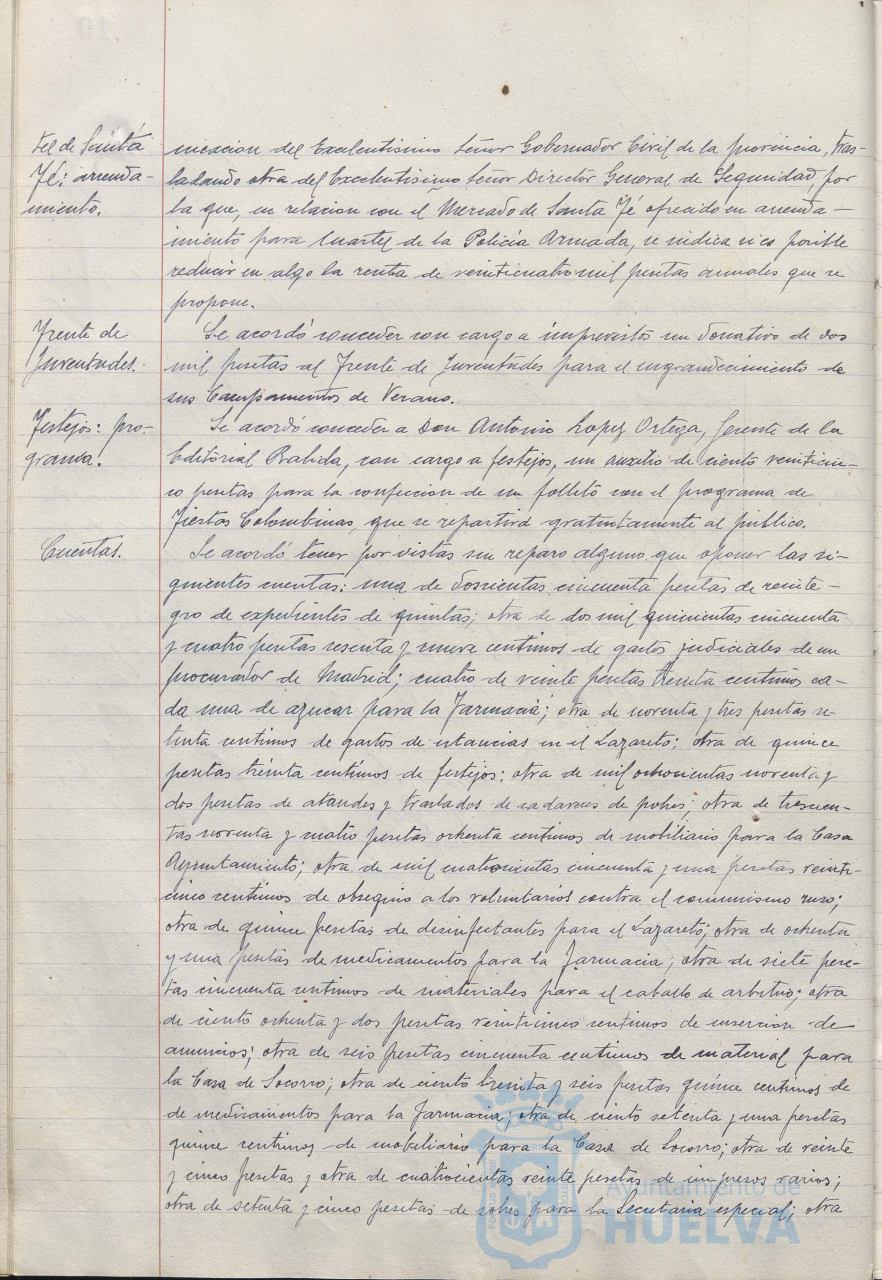 tel de Santa
Fé: arrenda-
miento.
nicacion del Excelentisimo Señor Gobernador Civil de la provincia, tras-
ladando otra del Excelentisimo Señor Director General de Seguridad, por
la que, en relacion con el Mercado de Santa Fé ofrecido en arrenda-
miento para Cuartel de la Policía Armada, se indica si es posible
reducir en algo la renta de veinticuatro mil pesetas anuales que se
propone.
Frente de
Juventudes.
Se acordó conceder con cargo a imprevistos un donativo de dos
mil pesetas al Frente de Juventudes para el engrandecimiento de
sus Campamentos de Verano.
Festejos: pro-
grama.
Se acordó conceder a Don Antonio Lopez Ortega, Gerente de la
Editorial Rabida, con cargo a festejos, un auxilio de ciento veinticin-
co pesetas para la confeccion de un folleto con el programa de
Fiestas Colombinas, que se repartirá gratuitamente al público.
Cuentas.
Se acordó tener por vistas sin reparo alguno que oponer las si-
guientes cuentas: una de doscientas cincuenta pesetas de reinte-
gro de expedientes de quintas; otra de dos mil quinientas cincuenta
y cuatro pesetas sesenta y nueve centimos de gastos judiciales de un
procurador de Madrid; cuatro de veinte pesetas treinta centimos ca-
da una de azucar para la Farmacia; otra de noventa y tres pesetas se-
tenta centimos de gastos de estancias en el Lazareto; otra de quince
pesetas treinta centimos de festejos; otra de mil ochocientas noventa y
dos pesetas de ataudes y traslados de cadaveres de pobres; otra de trescien-
tas noventa y cuatro pesetas ochenta centimos de mobiliario para la Casa
Ayuntamiento; otra de mil cuatrocientas cincuenta y una pesetas veinti-
cinco centimos de obsequio a los voluntarios contra el comunismo ruso;
otra de quince pesetas de desinfectantes para el Lazareto; otra de ochenta
y una pesetas de medicamentos para la farmacia; otra de siete pese-
tas cincuenta centimos de materiales para el caballo de arbitrio; otra
de ciento ochenta y dos pesetas veinticinco centimos de insercion de
anuncios; otra de seis pesetas cincuenta centimos de material para
la Casa de Socorro; otra de ciento treinta y seis pesetas quince centimos de
de medicamentos para la farmacia; otra de ciento setenta y una pesetas
quince centimos de mobiliario para la Casa de Socorro; otra de veinte
y cinco pesetas y otra de cuatrocientas veinte pesetas de impresos varios;
otra de setenta y cinco pesetas de sobres para la Secretaria especial; otra
Ayuntamiento de
HUELVA